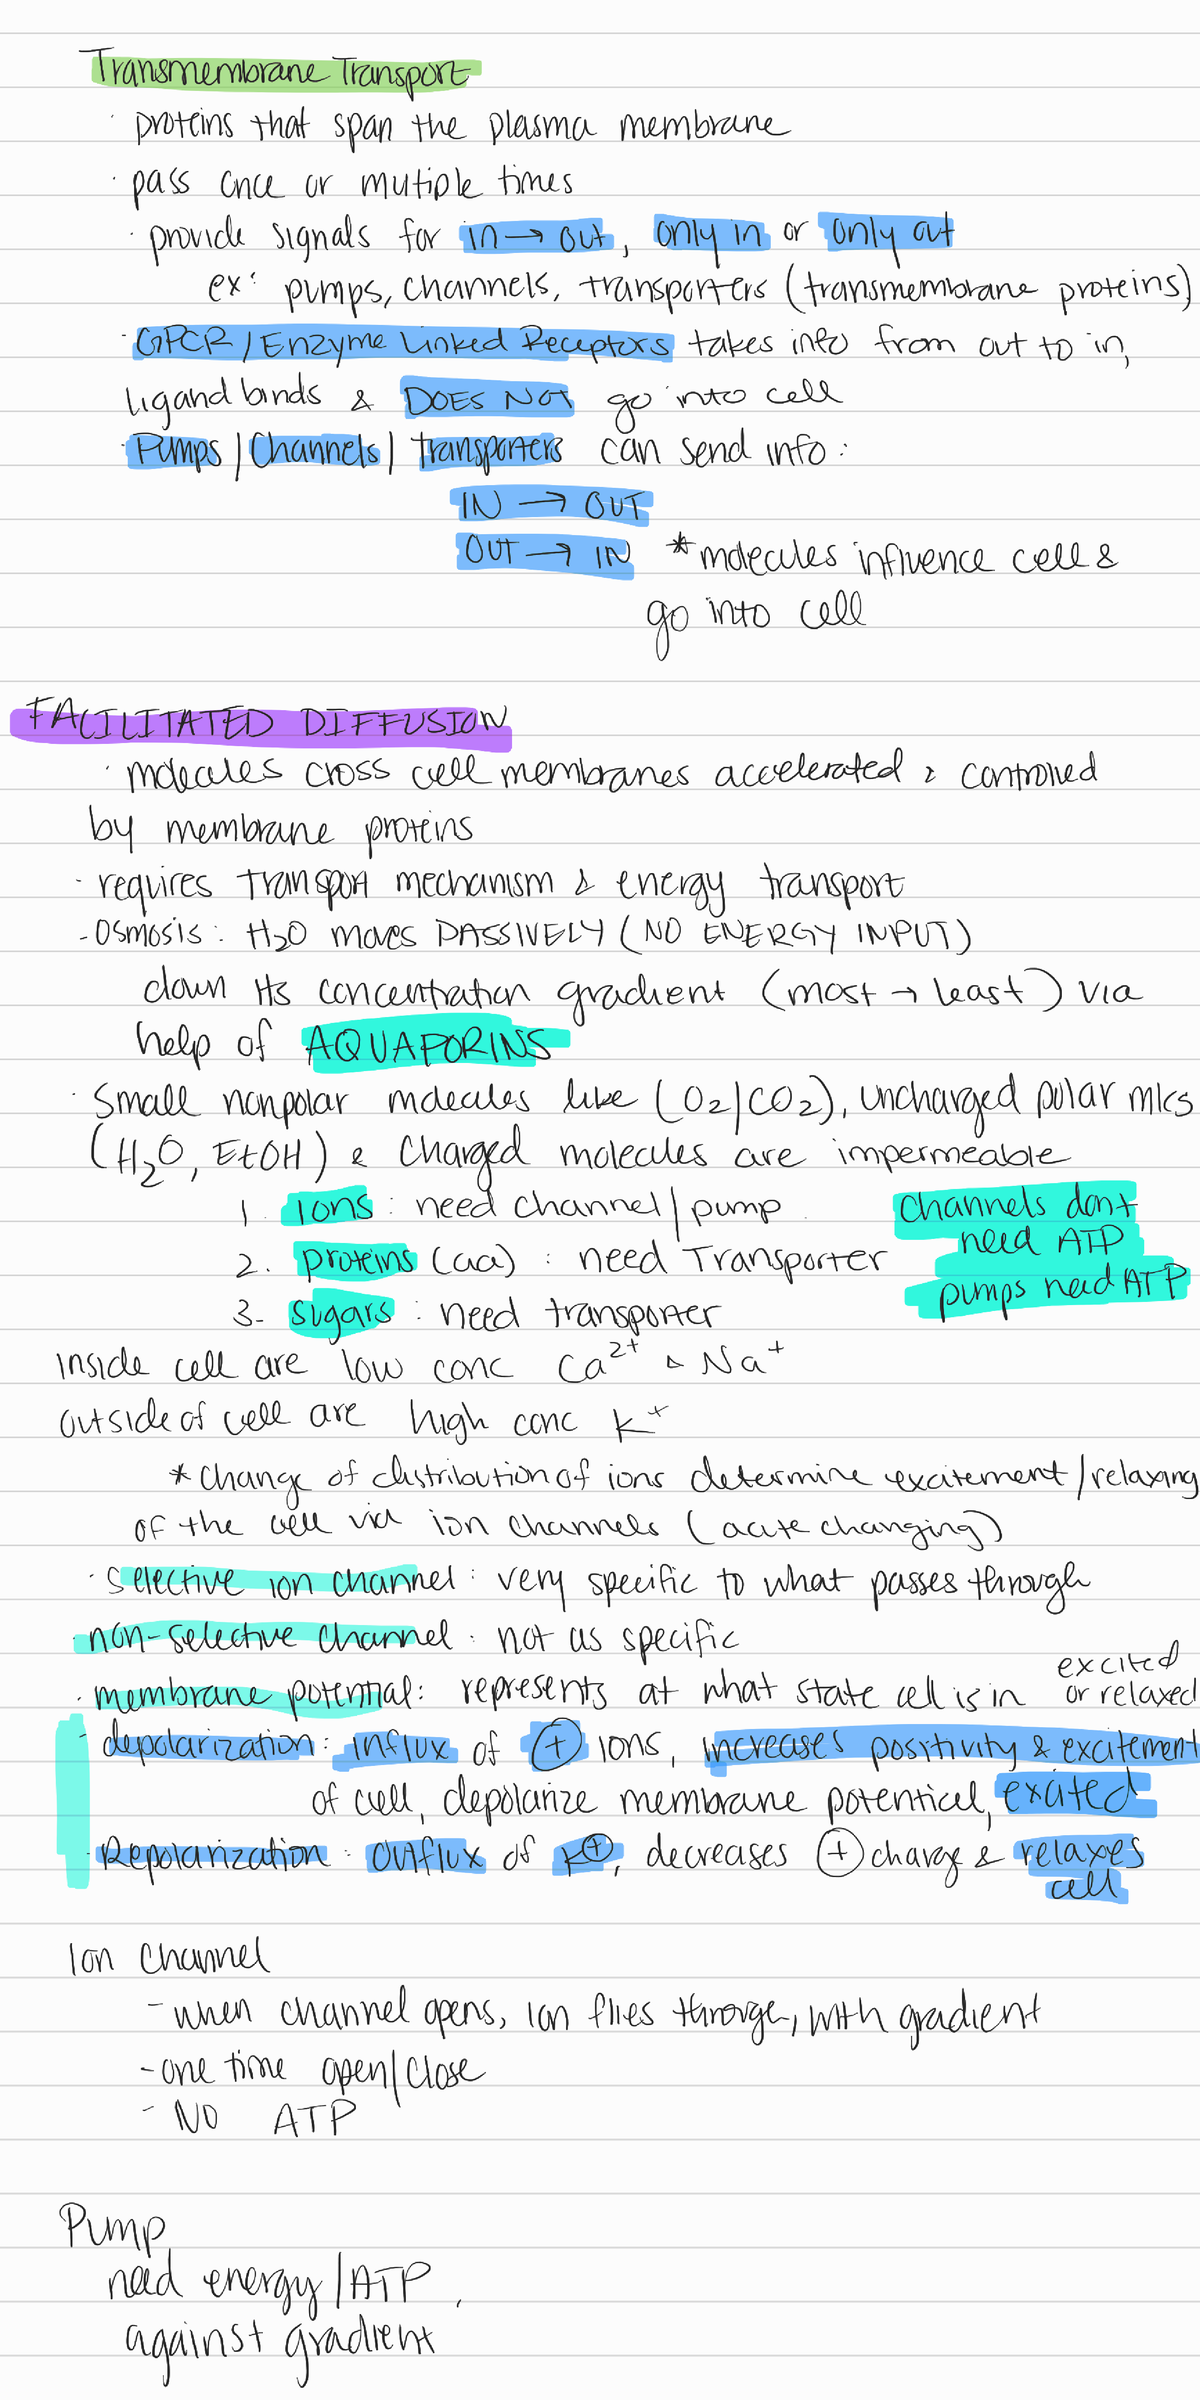 Transmembrane Transport
· proteins that span the plasma membrane
· pass once or mutiple times
· provide signals for in → out, only in or only out
ex: pumps, channels, transporters (transmembrane proteins)
· GPCR / Enzyme Linked Receptors takes info from out to in,
ligand binds & DOES NOT go into cell
· Pumps / Channels / transporters can send info:
IN → OUT
OUT → IN *molecules influence cell &
go into cell
FACILITATED DIFFUSION
· molecules cross cell membranes accelerated & controlled
by membrane proteins
· requires transport mechanism & energy transport
- Osmosis: H2O moves PASSIVELY (NO ENERGY INPUT)
down its concentration gradient (most → least) via
help of AQUAPORINS
· Small nonpolar molecules like (O2/CO2), uncharged polar mlcs
(H2O, EtOH) & charged molecules are impermeable
1. Ions: need channel/pump
2. proteins (aa): need Transporter
3. sugars: need transporter
channels dont
need ATP
pumps need ATP
inside cell are low conc Ca2+ & Na+
outside of cell are high conc K+
*change of distribution of ions determine excitement/relaxing
of the cell via ion channels (acute changing)
· selective ion channel: very specific to what passes through
· non-selective channel: not as specific
· membrane potential: represents at what state cell is in excited
or relaxed
· depolarization: influx of + ions, increases positivity & excitement
of cell, depolarize membrane potential, excited
· Repolarization: outflux of K+, decreases + charge & relaxes
cell
Ion Channel
- when channel opens, ion flies througe, with gradient
- one time open/close
- NO ATP
Pump
need energy/ATP,
against gradient